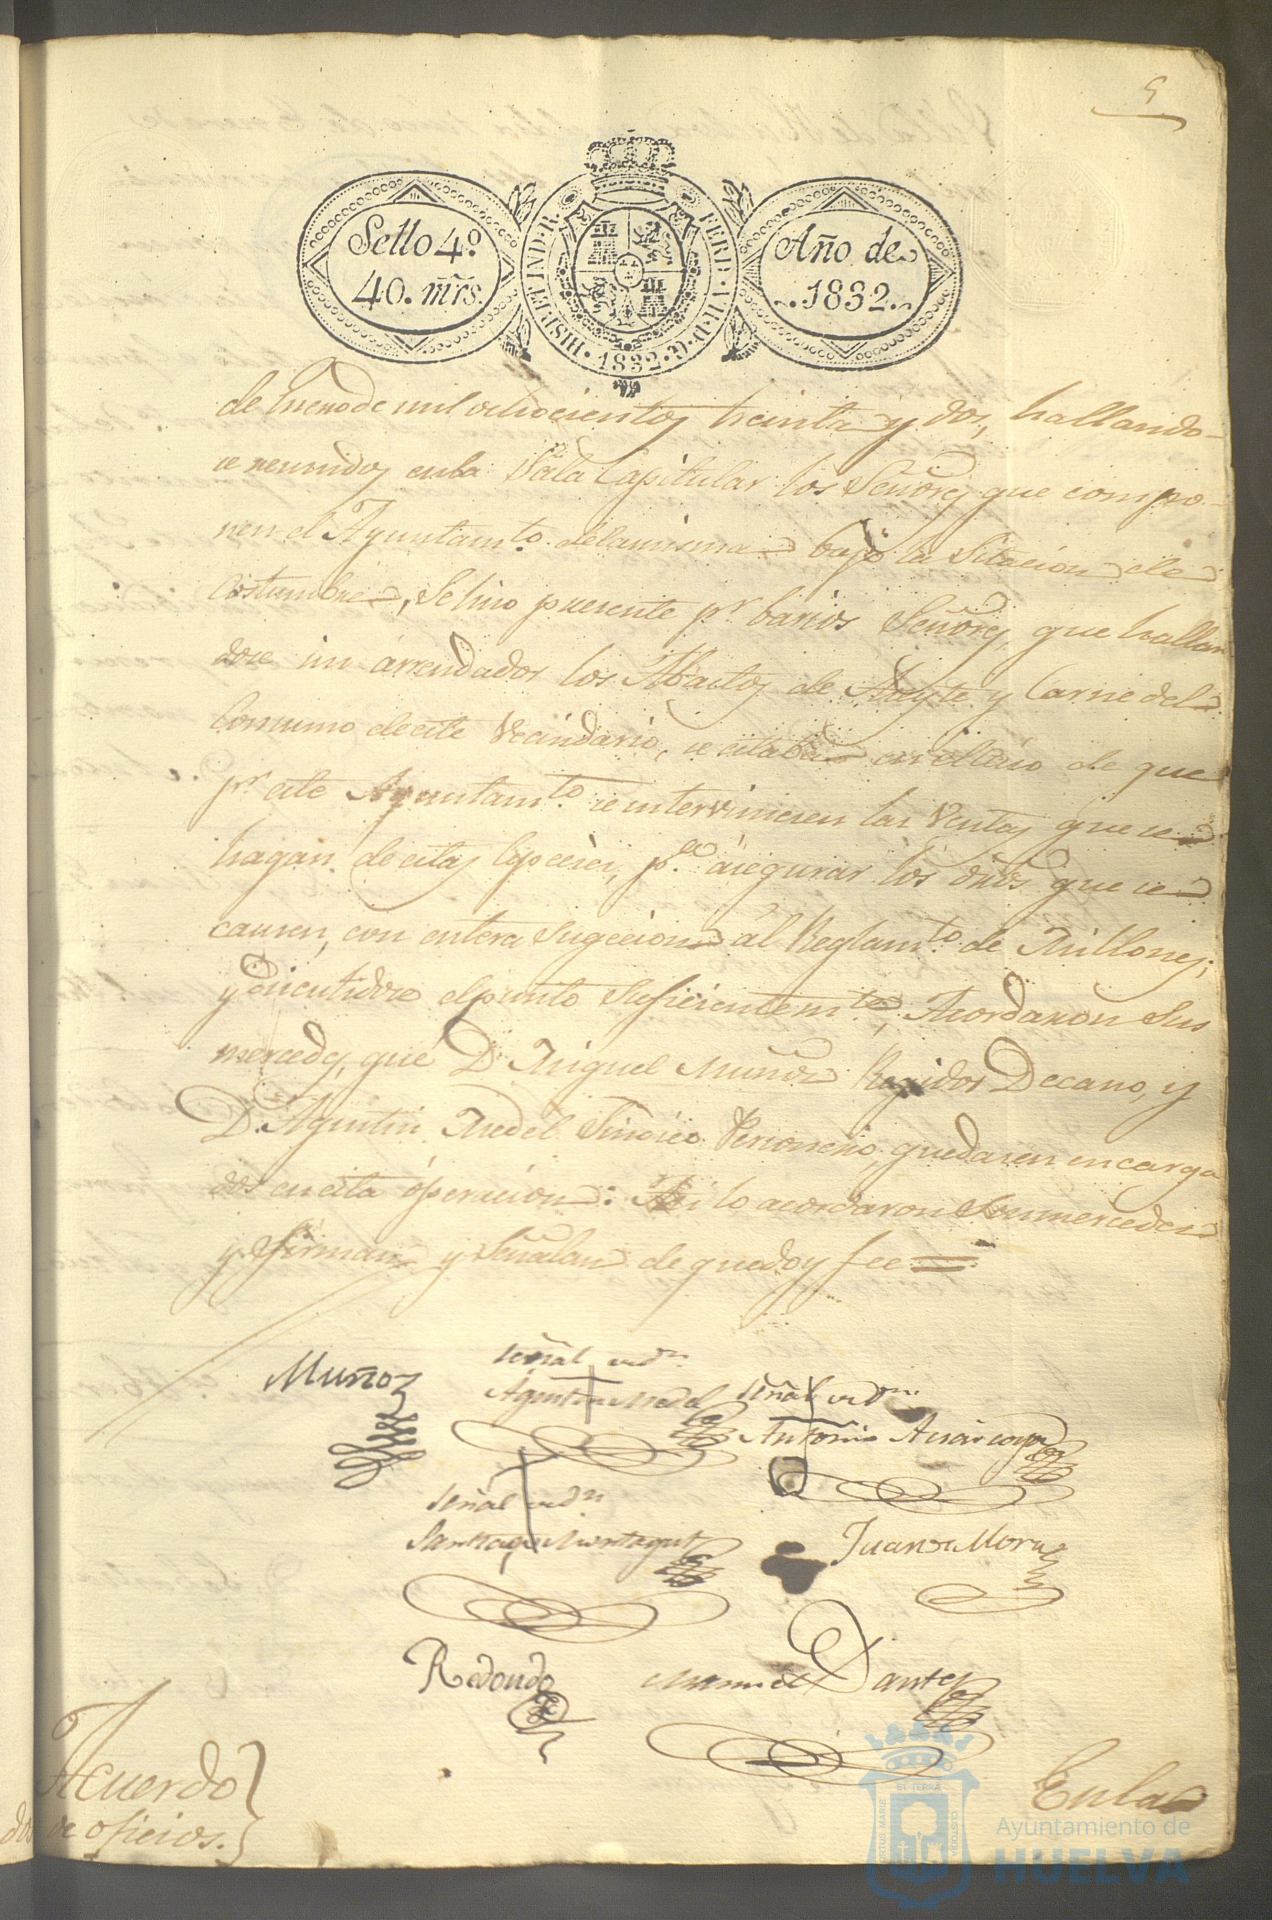 5
Sello 4º
40. mrs.
HISP. ET IND. R.
FERD. VII. D. G.
1832
Año de
1832
de Enero de mil ochocientos treinta y dos, hallando-
se reunidos en la Sala Capitular los Señores que compo-
nen el Ayuntamto. de la misma bajo la Sitacion de
Costumbre, se hiso presente pr. barios Señores, que hallan
dose sin arrendador los Abastos de Aseyte y Carne del
Consumo de este Vecindario, se estaba en el caso de que
pr. este Ayuntamto. se interviniesen las Ventas que se
hagan de estas Especies, pa. asegurar los dros. que se
causen, con entera sugeccion al Reglamto. de Millones;
y discutidose el punto suficientemte., Acordaron sus
mercedes, que D. Miguel Muñoz Regidor Decano, y
D. Agustin Medel Sindico Personero, quedasen encarga
dos en esta operacion: Asi lo acordaron Sus mercedes
y firman y Señalan de que doy fee =
Muñoz
señal de dn.
Agustin Medel
señal de dn.
Antonio
señal de dn.
Santiago Montagut
Juan de Mora
Redondo
Manuel Dantes
Acuerdo
de oficios.
En la
Ayuntamiento de
HUELVA